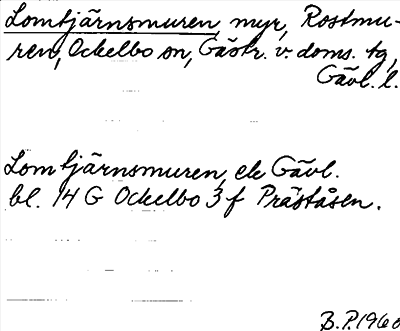 Lomtjärnsmuren, myr, Rostmu-
ren, Ockelbo sn, Gästr. v. doms. tg,
Gävl. l.
Lomtjärnsmuren, ek Gävl.
bl. 14 G Ockelbo 3 f Präståsen.
B.P. 1960